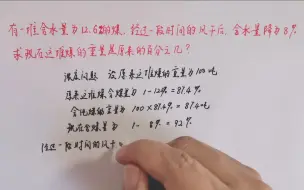 有一堆含水量为12.6%的煤,经过一段时间的风干后,含水量降为8%
求现在这堆煤的重量是原来的百分之几?
浓度问题 设原来这堆煤的重量为100吨
原来这堆煤含煤量为 1-12%=87.4%
含纯煤的重量为 100×87.4%=87.4吨
现在含煤量为 1-8%=92%
经过一段时间的风干